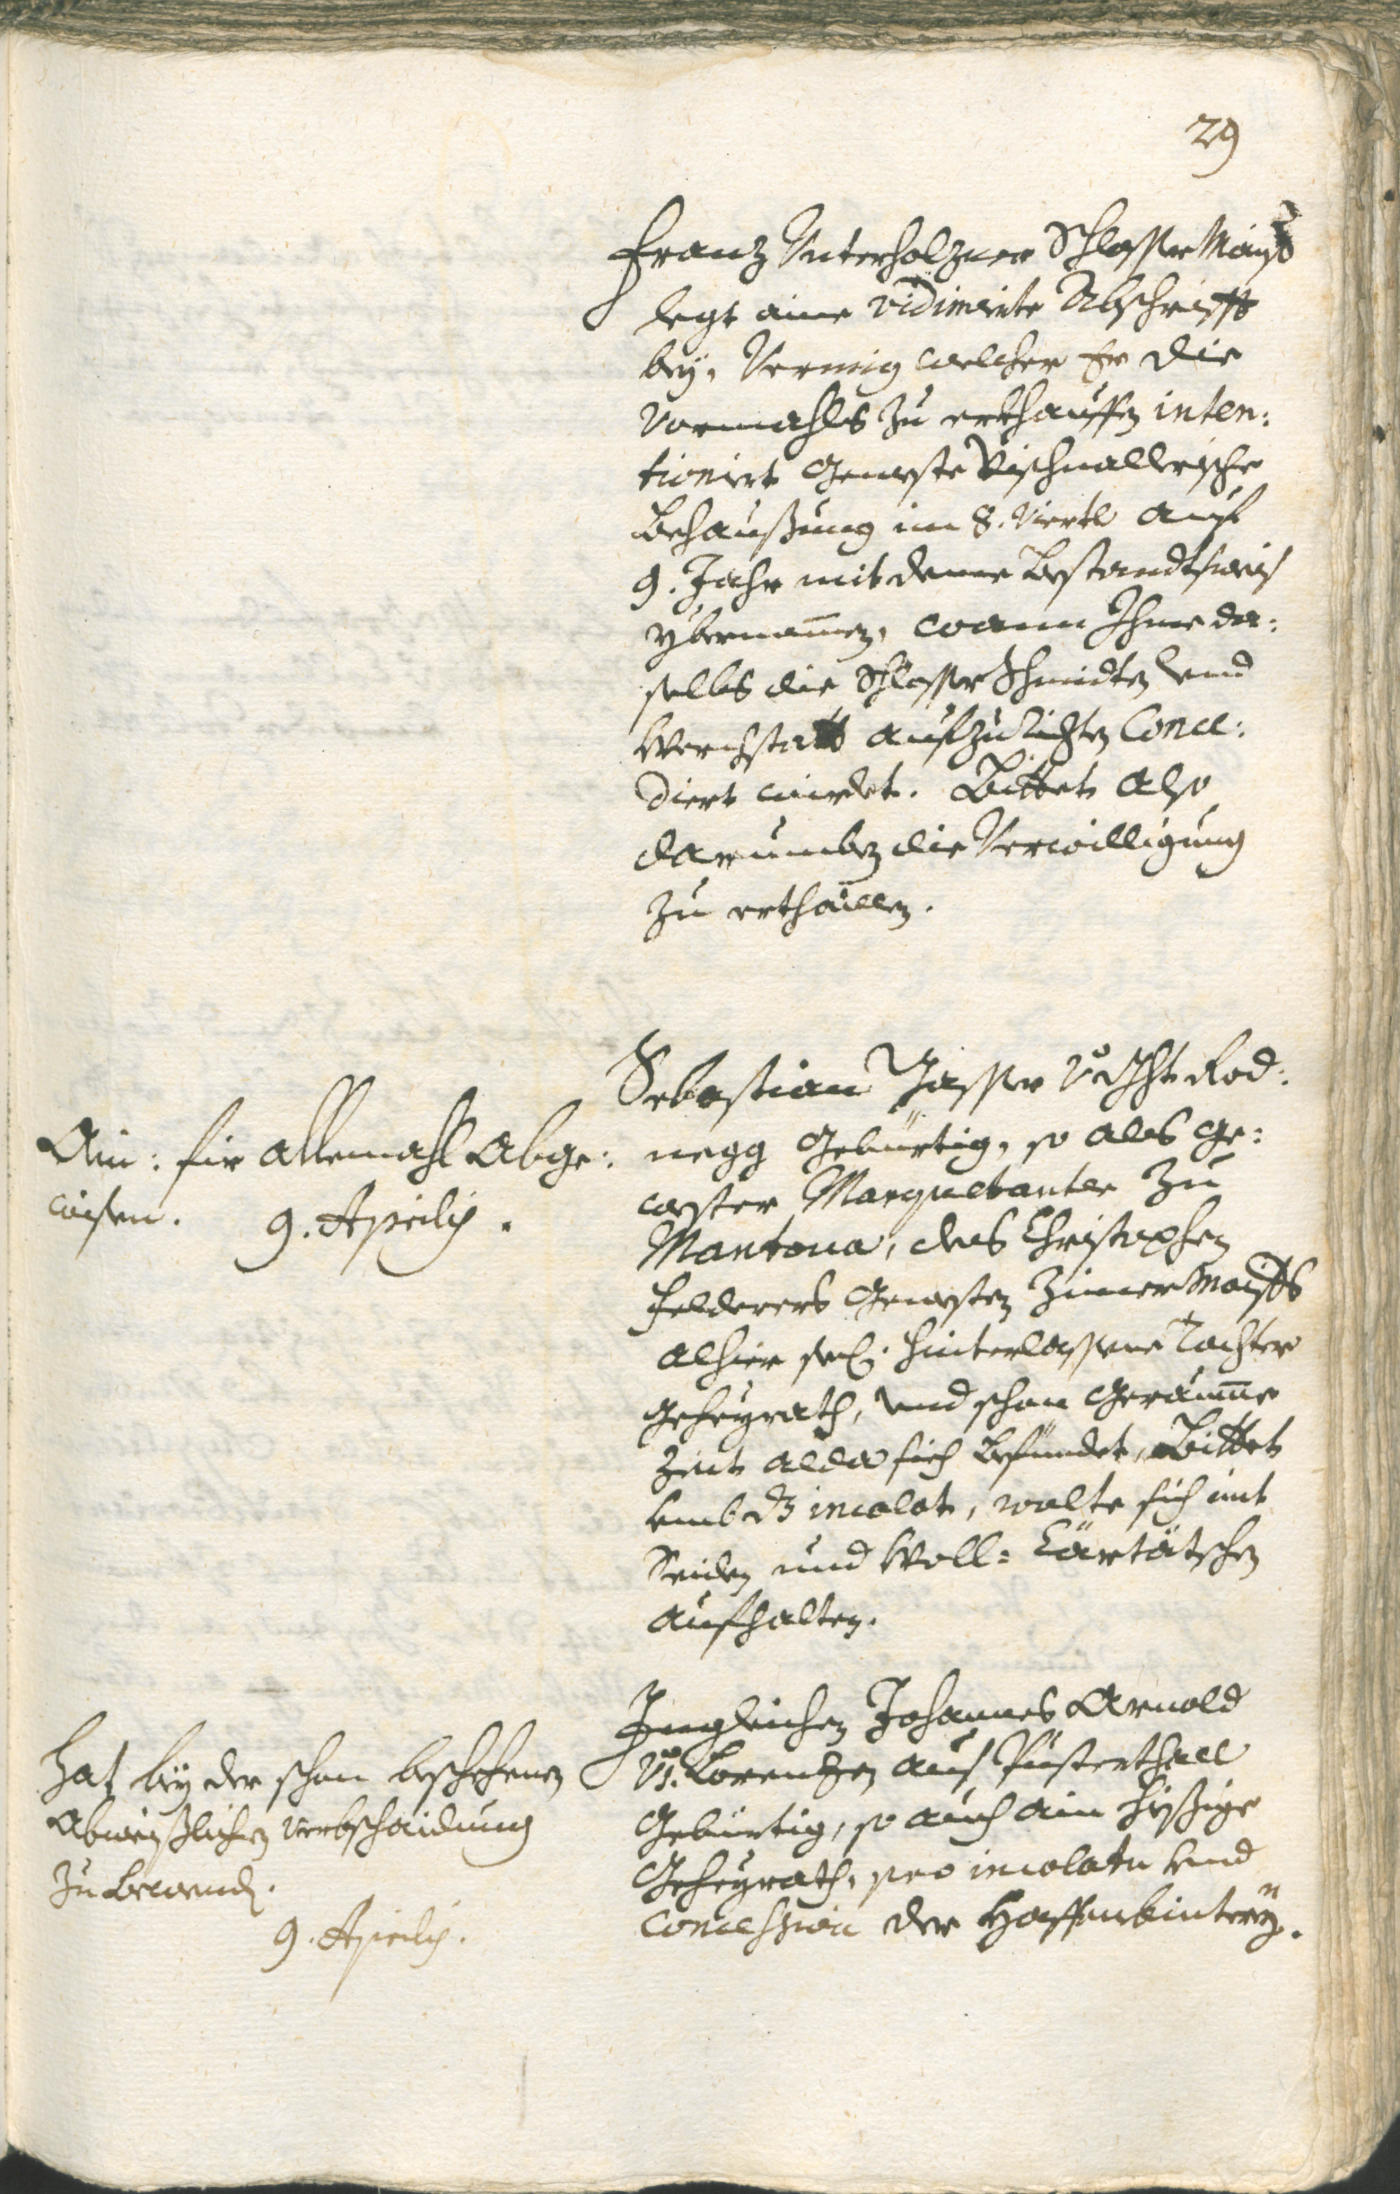 29
Franz Unterholzner Schlosser Maist
legt aine vidimierte Abschrifft
bey, Vermig welcher Er die
vormahls zu erkhauffen inten:
tioniert geweste Vischnallerische
Behaußung im 8. Viertl auf
9. Jahr mit deme Bestandtsweis
ybernommen, wann Ihme da:
selbs die Schlosser Schmidten und
Werchstatt aufzurichten Conce:
diert wirdet. Bittet also
darumben die Verwilligung
zu erthaillen.
Sebastian Gasser v. Ght Rod:
negg gebürtig, so als ge:
wester Marquetanter zu
Mantoua, des Christophen
Felderers gewesten Zimermaists
alhier seel: hinterlassene Tochter
geheyrath, und schon geraumme
Zeit alda sich befündet, Bittet
umb dz incolat, wolte sich mit
Seiden und Woll: Cartätschen
aufhalten.
Ain: für allemahl Abge:
wisen. 9. Aprilis.
Ingleichen Johannes Arnold
v. St. Lorentzen aus Pusterthall
gebürtig, so auch ain hyßige
geheyrath, pro incolatu und
concession der Haffenbinterey.
Hat bey der schon beschehenen
Abweißlichen verbschaidung
zu bewend.
9. Aprilis.